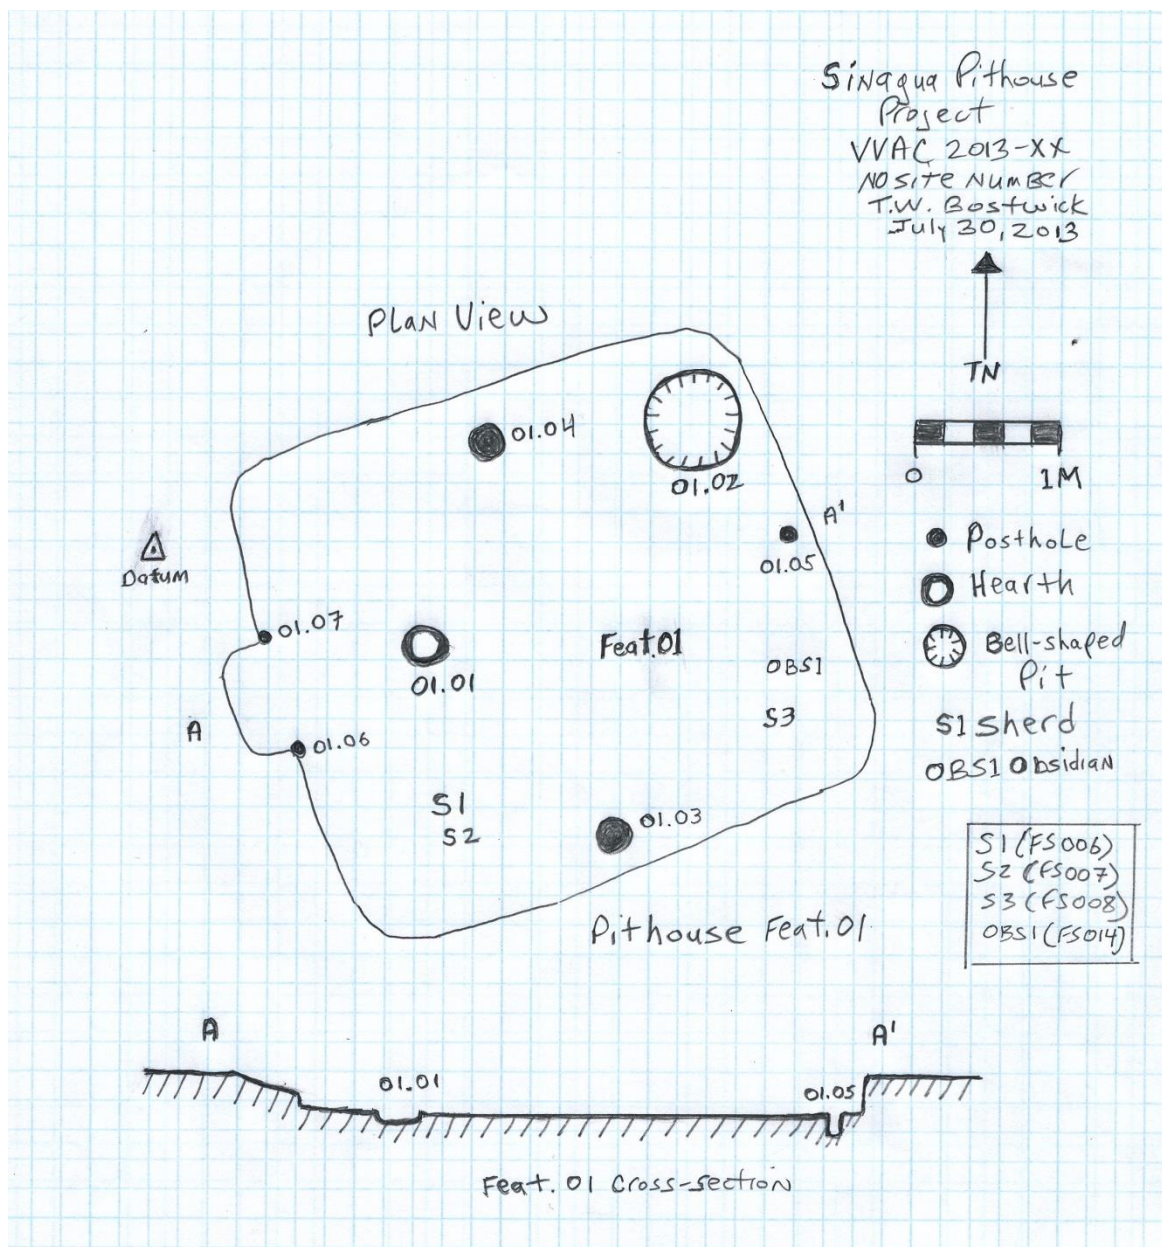 Sinagua Pithouse
Project
VVAC 2013-XX
NO Site Number
T.W. Bostwick
July 30, 2013
TN
0 1M
Posthole
Hearth
Bell-shaped
Pit
S1 Sherd
OBS1 Obsidian
S1 (FS006)
S2 (FS007)
S3 (FS008)
OBS1 (FS014)
Plan View
01.04
01.02
A'
01.05
Datum
01.07
01.01
Feat.01
OBS1
S3
A
01.06
S1
S2
01.03
Pithouse Feat.01
A
A'
01.01
01.05
Feat. 01 Cross-section